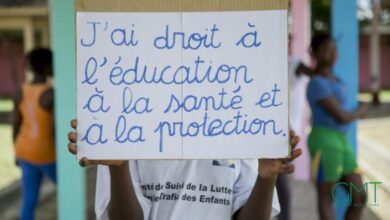 J'ai droit à
l'éducation
à la santé et
à la protection.
de Suivi de la Lutte
Trafic des Enfants
GMT